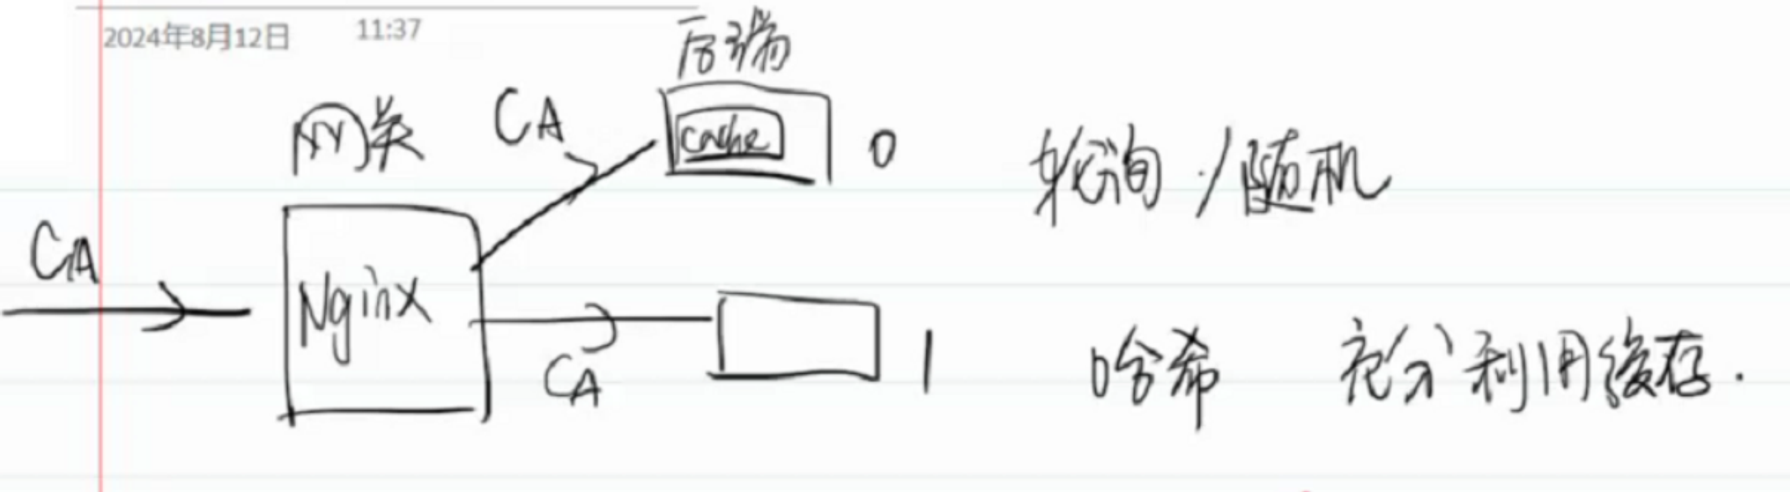 2024年8月12日 11:37
后端
网关
CA
cache
0
轮询/随机
CA
Nginx
CA
1
哈希 充分利用缓存.